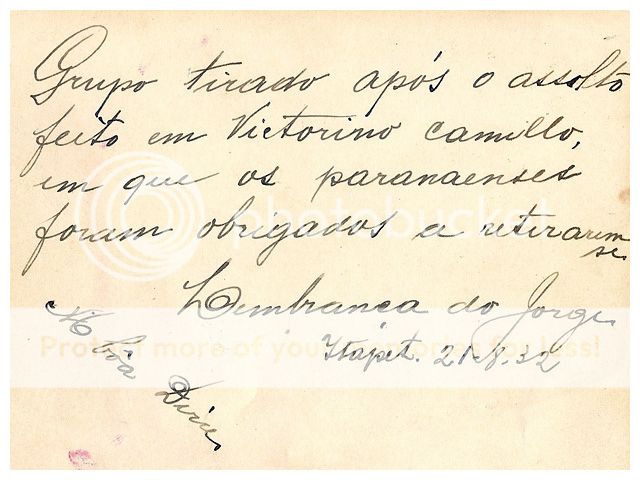 Grupo tirado após o assolto
feito em Victorino Camillo,
em que os paranaenses
foram obrigados a retirarem
se
Lembranca do Jorge
Itapet. 21-8-32
photobucket
Protect more of your memories for less!